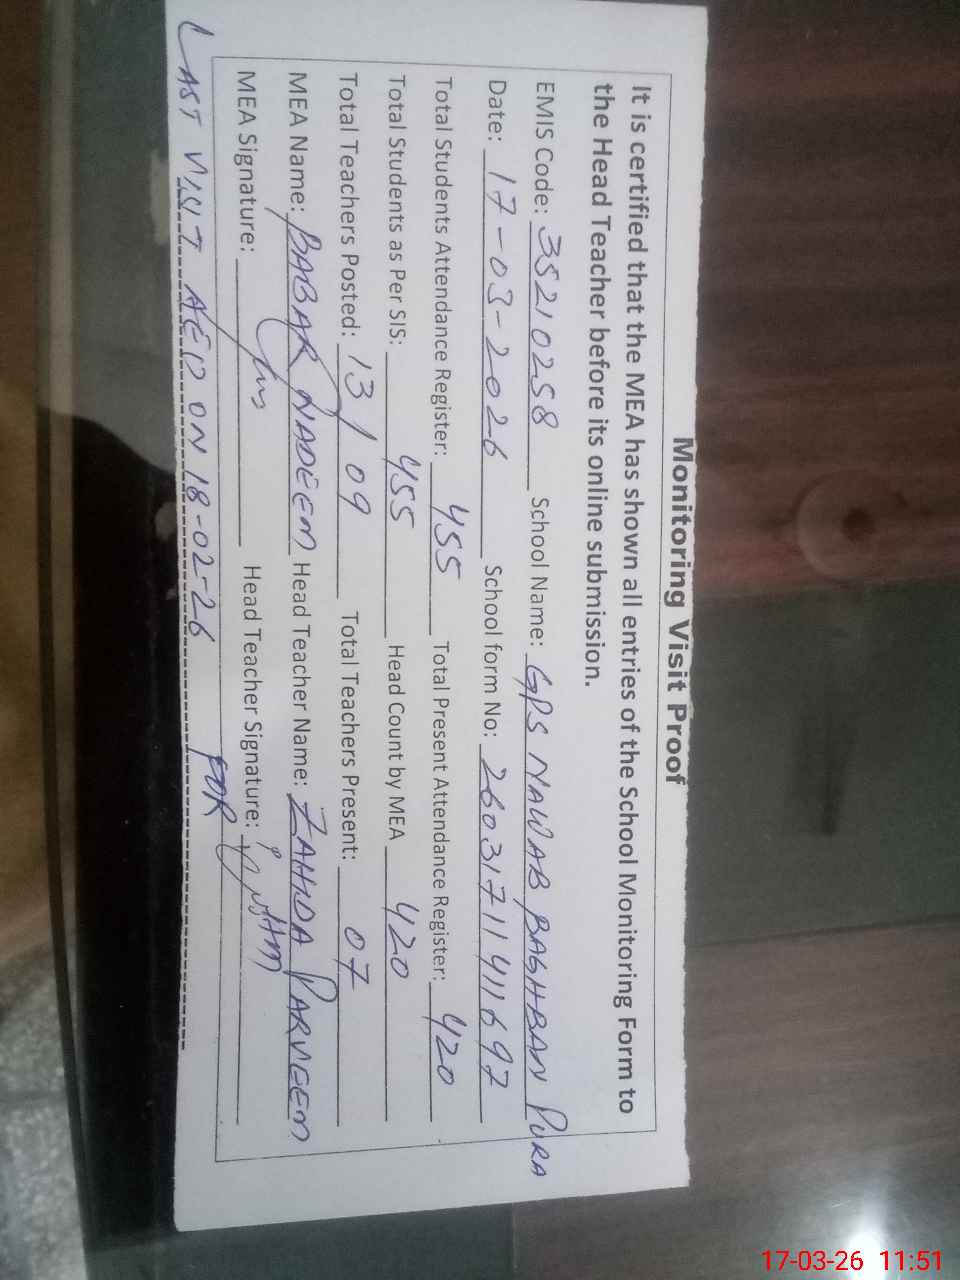 Monitoring Visit Proof
It is certified that the MEA has shown all entries of the School Monitoring Form to
the Head Teacher before its online submission.
EMIS Code: 35210258 School Name: GPS NAWAB BAGHBAN PURA
Date: 17-03-2026 School form No: 260317114111697
Total Students Attendance Register: 455 Total Present Attendance Register: 420
Total Students as Per SIS: 455 Head Count by MEA 420
Total Teachers Posted: 13/09 Total Teachers Present: 07
MEA Name: BABAR NADEEM Head Teacher Name: ZAHIDA PARVEEN
MEA Signature: Head Teacher Signature:
FOR
LAST VISIT AEO ON 18-02-26
17-03-26 11:51